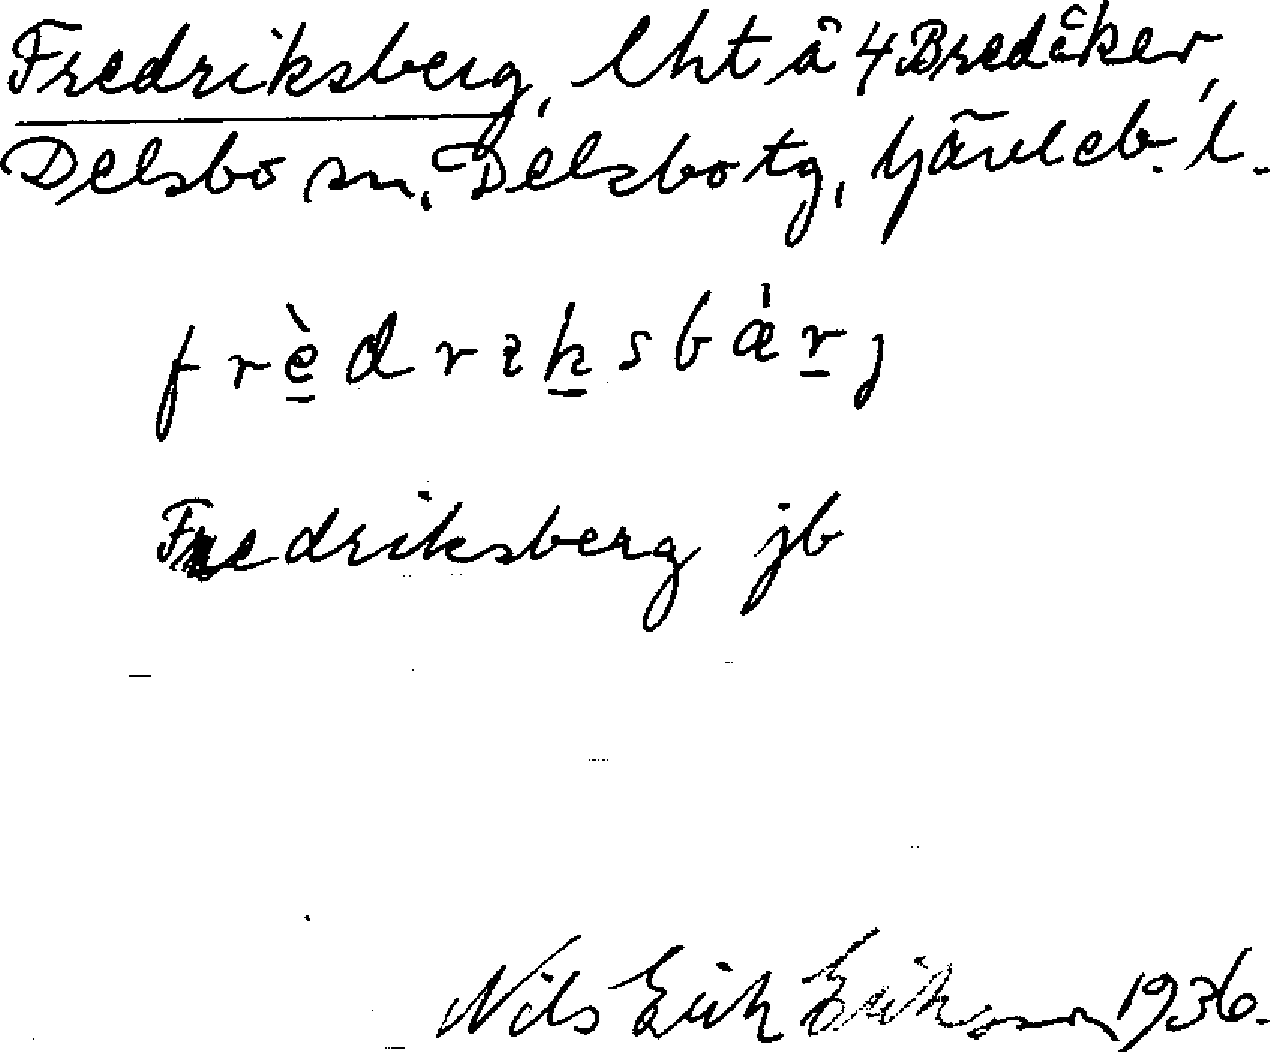 Fredriksberg, lht å 4 Bredåker,
Delsbo sn, Delsbo tg, Gävleb. l.
frèdriksbǽrj
Fredriksberg jb
Nils Erik Erikson 1936.